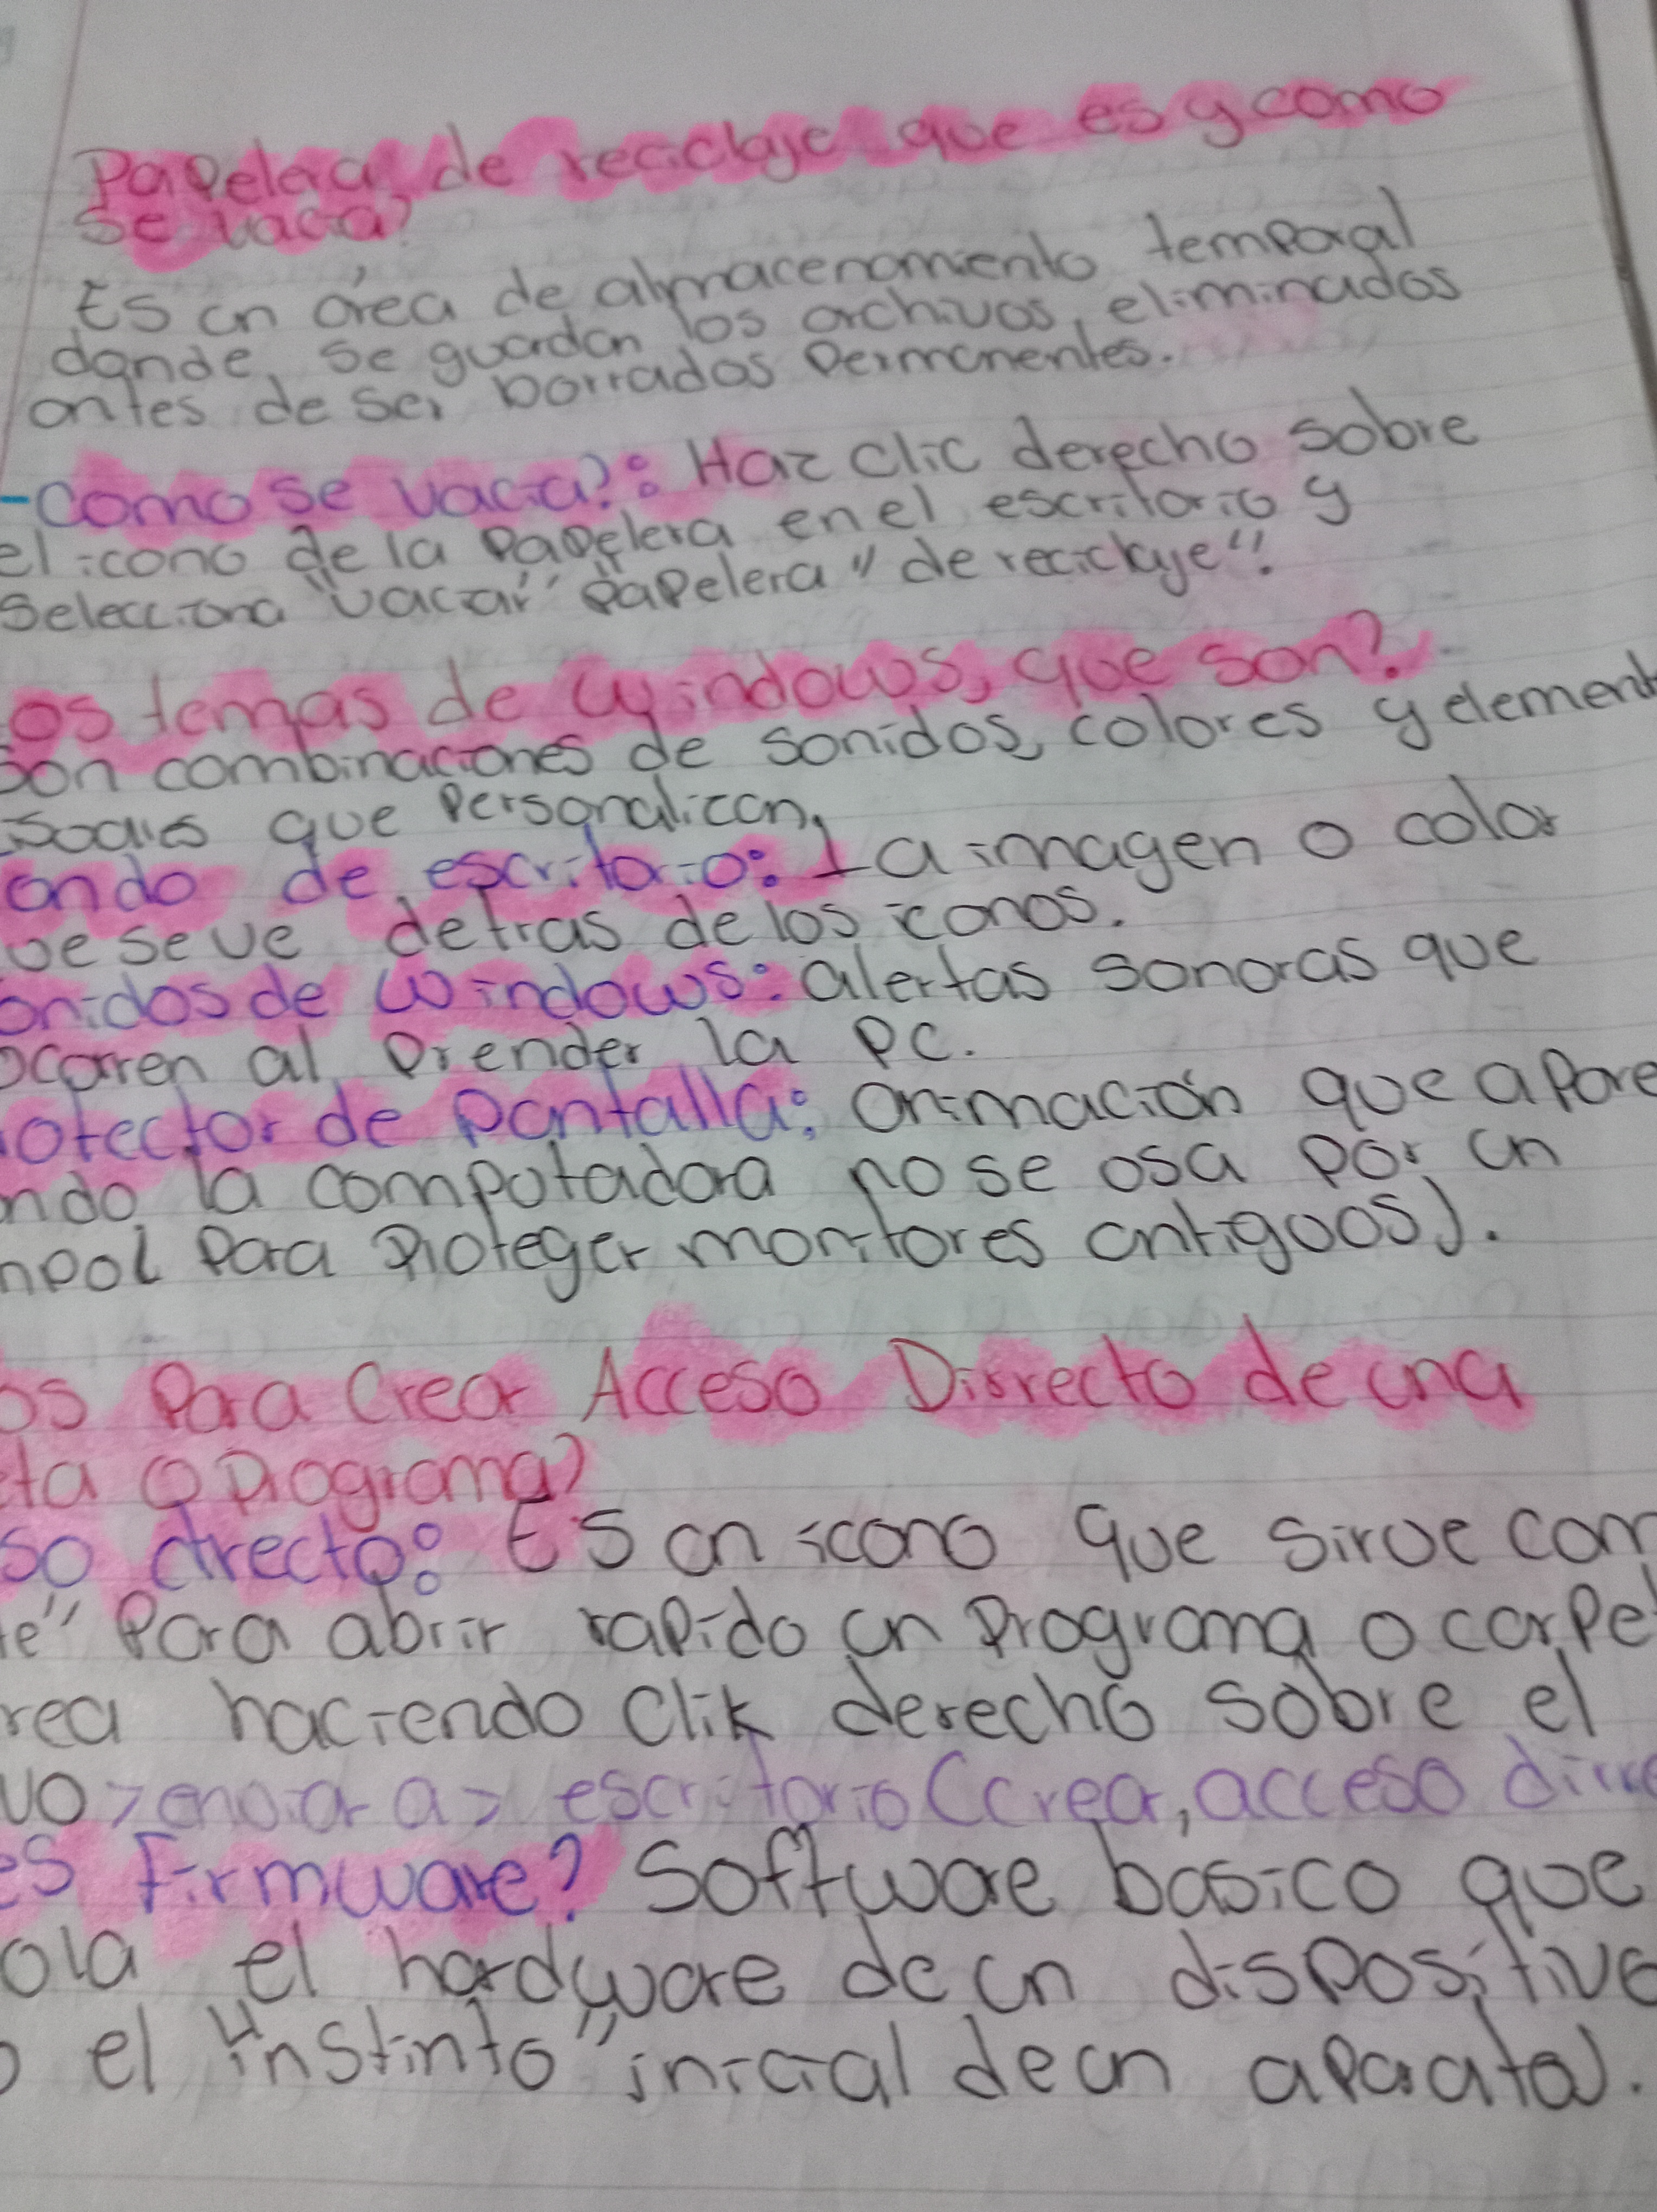 Papelera de reciclaje que es y como
se vacia?
Es un área de almacenamiento temporal
donde se guardan los archivos eliminados
antes de ser borrados permanentes.
-Como se vacia?: Haz clic derecho sobre
el icono de la papelera en el escritorio y
selecciona "vaciar" papelera" de reciclaje".
os temas de windows, que son?
son combinaciones de sonidos, colores y element
que personalizan.
ondo de escritorio: La imagen o color
ue se ve detras de los iconos.
onidos de windows: alertas sonoras que
ocurren al prender la PC.
rotector de pantalla: animación que apare
ndo la computadora no se usa por un
para proteger monitores antiguos).
os Para Crear Acceso Dirrecto de una
eta o programa?
so directo: Es un icono que sirve com
te" para abrir rapido un programa o carpet
rea haciendo clik derecho sobre el
vo > enviar a > escritorio (crear, acceso dirre
es Firmware? Software basico que
ola el hardware de un dispositivo
o el "instinto" inicial de un aparato).